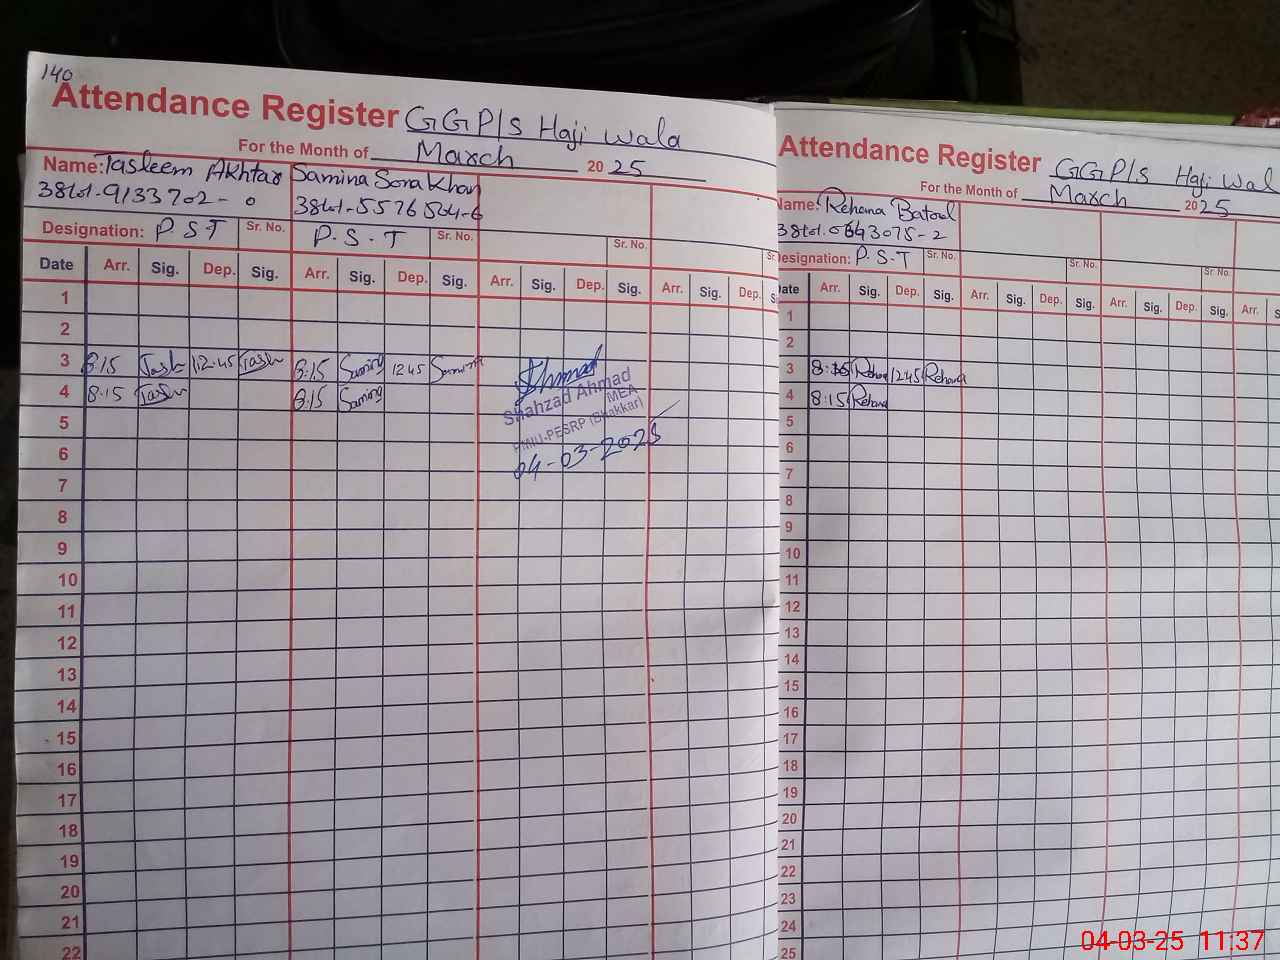 140
Attendance Register GGP/S Haji Wala
For the Month of March 2025
Name: Tasleem Akhtar Samina Sona Khan
38101-9133702-0 38101-5576504-6
Designation: P.S.T Sr. No. P.S.T Sr. No. Sr. No. Sr.
Date Arr. Sig. Dep. Sig. Arr. Sig. Dep. Sig. Arr. Sig. Dep. Sig. Arr. Sig. Dep. S
1
2
3 8:15 Tasl 12:45 Tasl 8:15 Samina 1245 Samina
4 8:15 Tasl 8:15 Samina
Ahmad
Shahzad Ahmad
MEA
PMIU-PESRP (Bhakkar)
04-03-2025
5
6
7
8
9
10
11
12
13
14
15
16
17
18
19
20
21
22
Attendance Register GGP/S Haji Wal
For the Month of March 2025
Name: Rehana Batool
38101-0843075-2
Designation: P.S.T Sr. No. Sr. No. Sr. No.
Date Arr. Sig. Dep. Sig. Arr. Sig. Dep. Sig. Arr. Sig. Dep. Sig. Arr. S
1
2
3 8:15 Rehana 1245 Rehana
4 8:15 Rehana
5
6
7
8
9
10
11
12
13
14
15
16
17
18
19
20
21
22
23
24
25
04-03-25 11:37